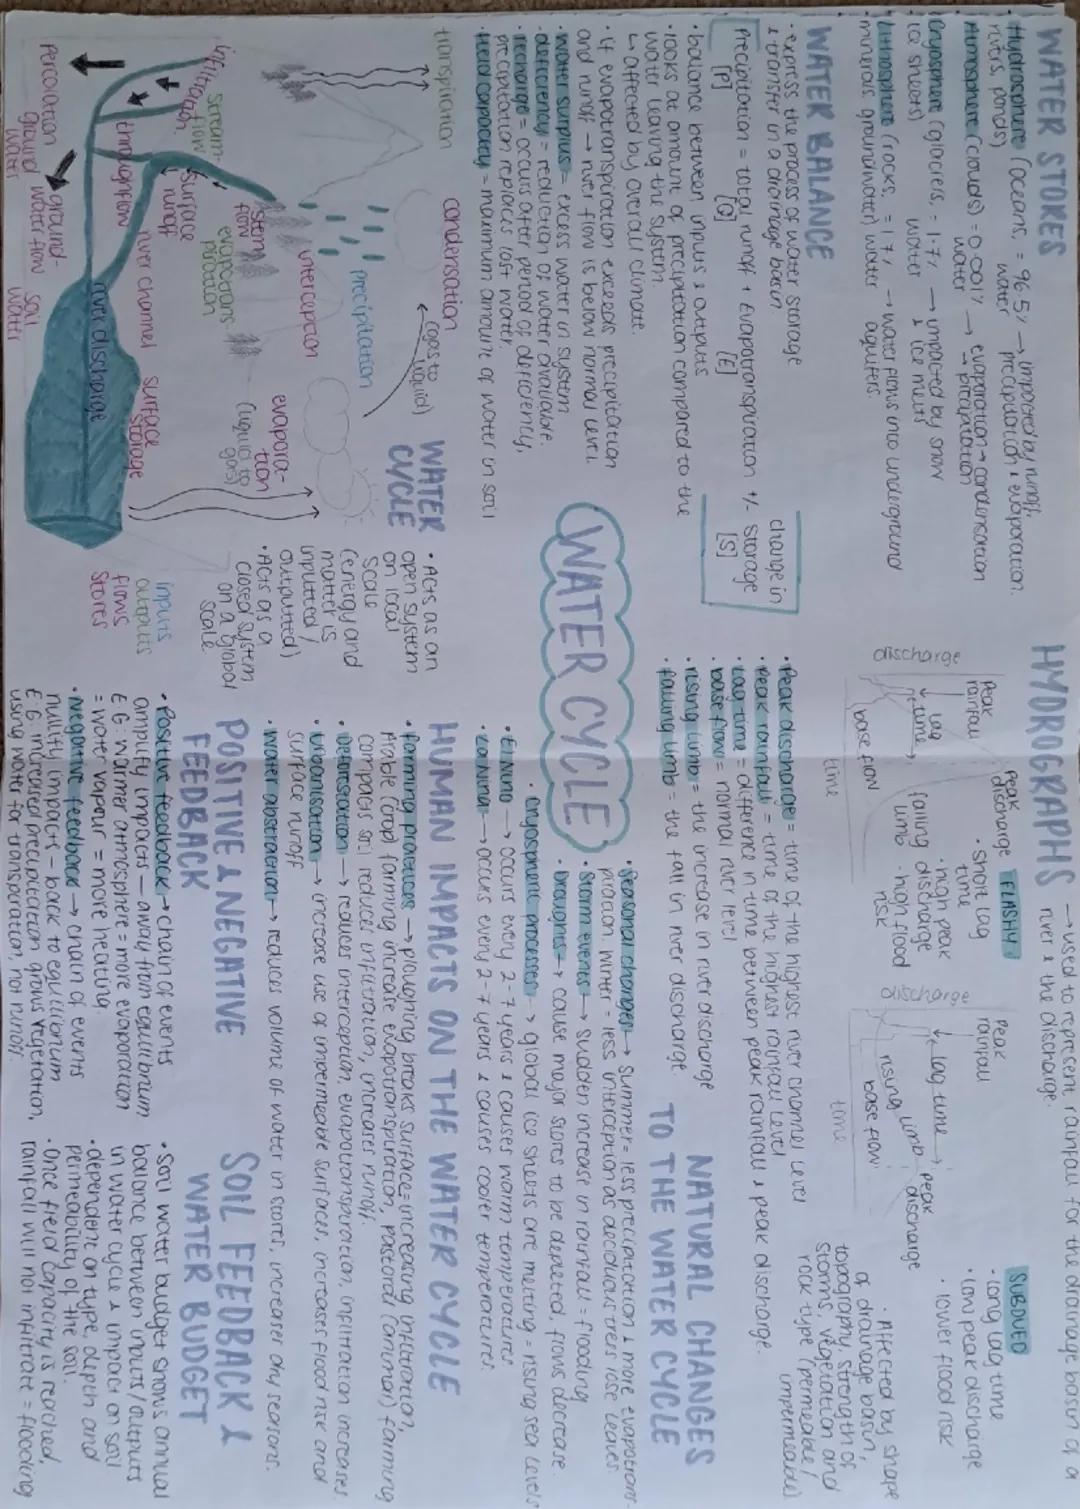 WATER STORES
· Hydrosphere (oceans, = 96.5% → impacted by runoff,
rivers, ponds) water precipitation & evaporation.
· Atmosphere (clouds) = 0.001% → evaporation → condensation
water → precipitation
· Cryosphere (glaciers, = 1.7% → impacted by snow
ice sheets) water & ice melts
· Lithosphere (rocks, = 1.7% → water flows into underground
minerals groundwater) water aquifers.
WATER BALANCE
· express the process of water storage
& transfer in a drainage basin.
Precipitation = total runoff + Evapotranspiration +/- change in storage
[P] [Q] [E] [S]
· balance between inputs & outputs
· looks at amount of precipitation compared to the
water leaving the system.
↳ affected by overall climate.
· if evapotranspiration exceeds precipitation
and runoff → river flow is below normal level.
· water surplus = excess water in system
· deficiency = reduction of water available.
· recharge = occurs after period of deficiency,
precipitation replaces lost water.
· field capacity = maximum amount of water in soil
WATER CYCLE
transpiration
condensation
(gas to liquid)
precipitation
evaporation
(liquid to gas)
interception
stem flow
evapotranspiration
stream-flow
infiltration
surface runoff
throughflow
river channel
surface storage
river discharge
percolation
ground water
ground-water flow
soil water
inputs
outputs
flows
stores
WATER
CYCLE
· Acts as an
open system
on local
scale
(energy and
matter is
inputted/
outputted)
· Acts as a
closed system
on a global
scale.
HYDROGRAPHS → used to represent rainfall for the drainage basin of a
river & the discharge.
discharge
peak rainfall
lag time
peak discharge
falling limb
base flow
time
FLASHY
· short lag
time
· high peak
discharge
· high flood
risk
discharge
peak rainfall
lag time
peak discharge
rising limb
base flow
time
SUBDUED
· long lag time
· low peak discharge
· lower flood risk
· Affected by shape
of drainage basin,
topography, strength of
storms, vegetation and
rock type (permeable/
impermeable)
· Peak discharge = time of the highest river channel level
· Peak rainfall = time of the highest rainfall level
· Lag time = difference in time between peak rainfall & peak discharge.
· base flow = normal river level
· rising limb = the increase in river discharge
· falling limb = the fall in river discharge.
NATURAL CHANGES
TO THE WATER CYCLE
· Seasonal changes → Summer = less precipitation & more evapotrans-
piration. Winter = less interception as deciduous trees lose leaves.
· Storm events → sudden increase in rainfall = flooding
· Droughts → cause major stores to be depleted, flows decrease.
· Cryospheric processes → global ice sheets are melting = rising sea levels
· El Nino → occurs every 2-7 years & causes warm temperatures
· La Nina → occurs every 2-7 years & causes cooler temperatures.
HUMAN IMPACTS ON THE WATER CYCLE
· farming practices → ploughing breaks surface = increasing infiltration,
Arable (crop) farming increase evapotranspiration, pastoral (animal) farming
compacts soil, reduces infiltration, increases runoff.
· Deforestation → reduces interception, evapotranspiration, infiltration increases.
· Urbanisation → increase use of impermeable surfaces, increases flood risk and
surface runoff
· Water abstraction → reduces volume of water in stores, increases dry seasons.
POSITIVE & NEGATIVE
FEEDBACK
· Positive feedback → chain of events
amplify impacts - away from equilibrium
E.G: warmer atmosphere = more evaporation
= water vapour = more heating.
· Negative feedback → chain of events
nullify impact - back to equilibrium
E.G: increased precipitation grows vegetation,
using water for transpiration, not runoff.
SOIL FEEDBACK &
WATER BUDGET
· Soil water budget shows annual
balance between inputs/outputs
in water cycle & impact on soil
· dependent on type, depth and
permeability of the soil.
· Once field capacity is reached,
rainfall will not infiltrate = flooding